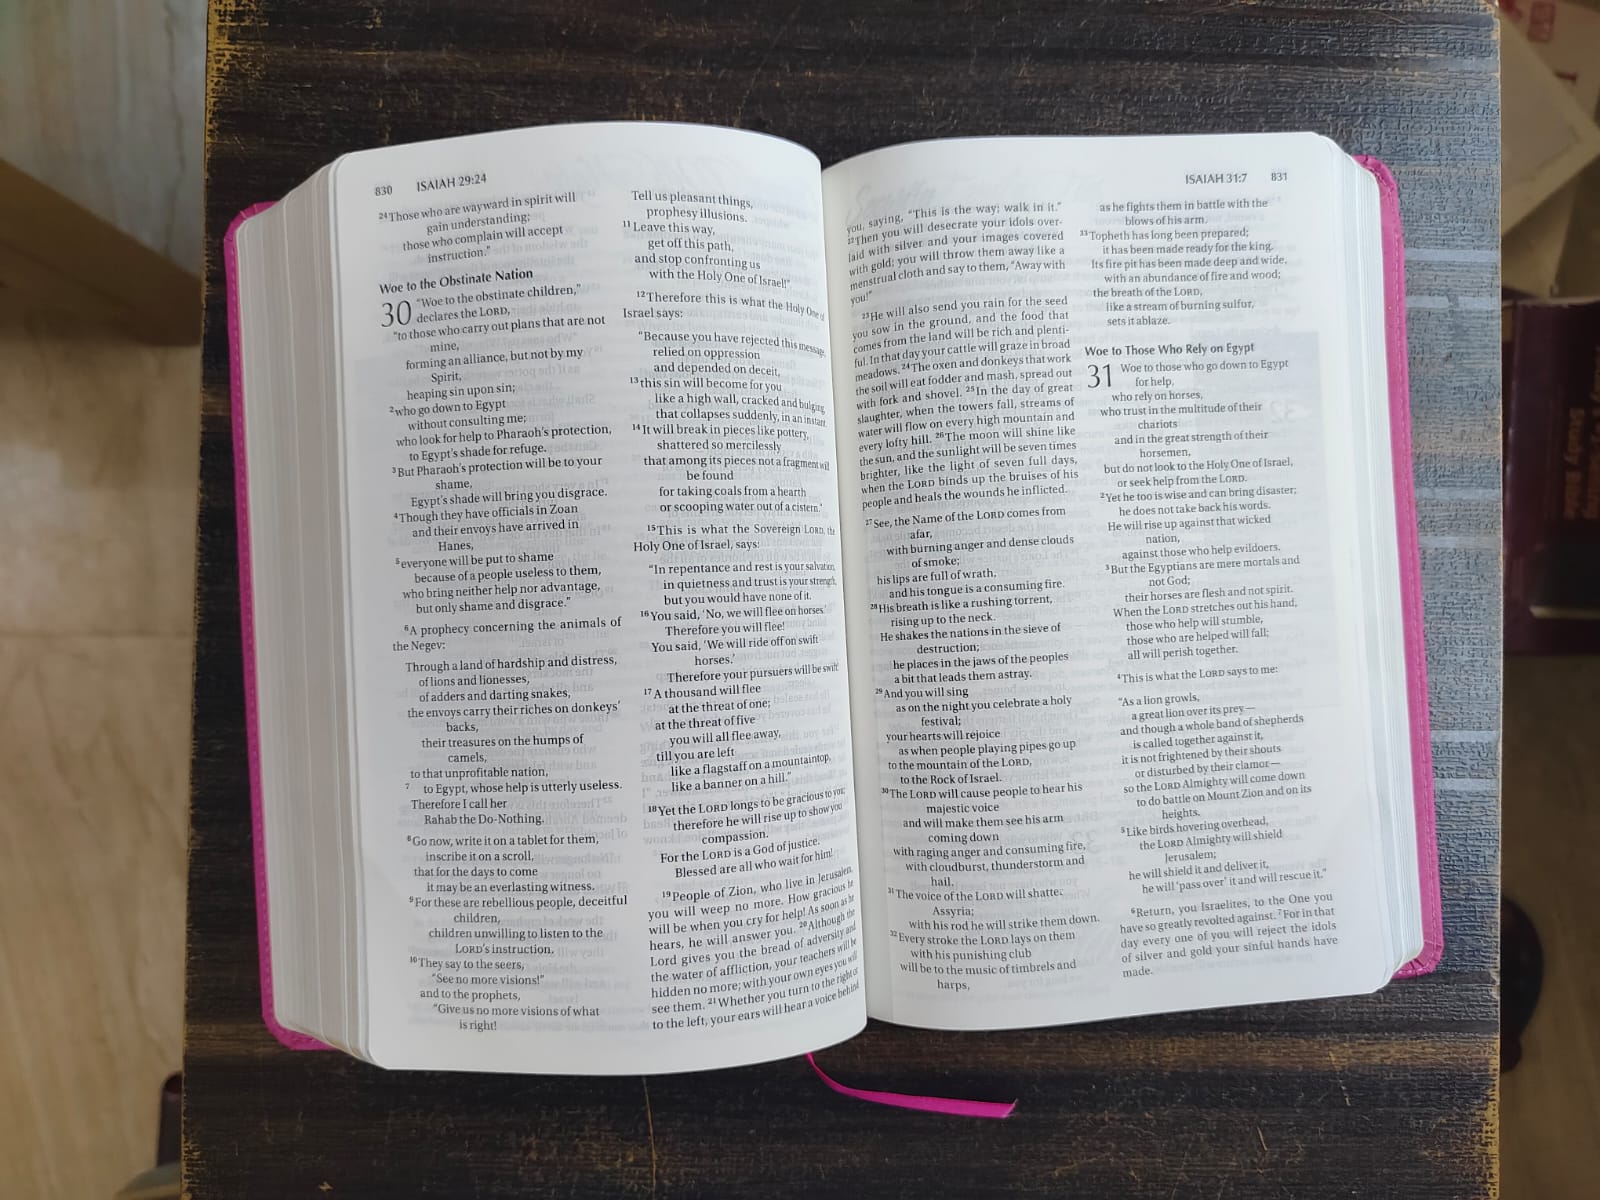 830 ISAIAH 29:24
24Those who are wayward in spirit will
gain understanding;
those who complain will accept
instruction.”
Woe to the Obstinate Nation
30 “Woe to the obstinate children,”
declares the LORD,
“to those who carry out plans that are not
mine,
forming an alliance, but not by my
Spirit,
heaping sin upon sin;
2who go down to Egypt
without consulting me;
who look for help to Pharaoh’s protection,
to Egypt’s shade for refuge.
3But Pharaoh’s protection will be to your
shame,
Egypt’s shade will bring you disgrace.
4Though they have officials in Zoan
and their envoys have arrived in
Hanes,
5everyone will be put to shame
because of a people useless to them,
who bring neither help nor advantage,
but only shame and disgrace.”
6A prophecy concerning the animals of
the Negev:
Through a land of hardship and distress,
of lions and lionesses,
of adders and darting snakes,
the envoys carry their riches on donkeys’
backs,
their treasures on the humps of
camels,
to that unprofitable nation,
7 to Egypt, whose help is utterly useless.
Therefore I call her
Rahab the Do-Nothing.
8Go now, write it on a tablet for them,
inscribe it on a scroll,
that for the days to come
it may be an everlasting witness.
9For these are rebellious people, deceitful
children,
children unwilling to listen to the
LORD’s instruction.
10They say to the seers,
“See no more visions!”
and to the prophets,
“Give us no more visions of what
is right!
Tell us pleasant things,
prophesy illusions.
11Leave this way,
get off this path,
and stop confronting us
with the Holy One of Israel!”
12Therefore this is what the Holy One of
Israel says:
“Because you have rejected this message,
relied on oppression
and depended on deceit,
13this sin will become for you
like a high wall, cracked and bulging,
that collapses suddenly, in an instant.
14It will break in pieces like pottery,
shattered so mercilessly
that among its pieces not a fragment will
be found
for taking coals from a hearth
or scooping water out of a cistern.”
15This is what the Sovereign LORD, the
Holy One of Israel, says:
“In repentance and rest is your salvation,
in quietness and trust is your strength,
but you would have none of it.
16You said, ‘No, we will flee on horses.’
Therefore you will flee!
You said, ‘We will ride off on swift
horses.’
Therefore your pursuers will be swift!
17A thousand will flee
at the threat of one;
at the threat of five
you will all flee away,
till you are left
like a flagstaff on a mountaintop,
like a banner on a hill.”
18Yet the LORD longs to be gracious to you;
therefore he will rise up to show you
compassion.
For the LORD is a God of justice.
Blessed are all who wait for him!
19People of Zion, who live in Jerusalem,
you will weep no more. How gracious he
will be when you cry for help! As soon as he
hears, he will answer you. 20Although the
Lord gives you the bread of adversity and
the water of affliction, your teachers will be
hidden no more; with your own eyes you will
see them. 21Whether you turn to the right or
to the left, your ears will hear a voice behind
ISAIAH 31:7 831
you, saying, “This is the way; walk in it.”
22Then you will desecrate your idols over-
laid with silver and your images covered
with gold; you will throw them away like a
menstrual cloth and say to them, “Away with
you!”
23He will also send you rain for the seed
you sow in the ground, and the food that
comes from the land will be rich and plenti-
ful. In that day your cattle will graze in broad
meadows. 24The oxen and donkeys that work
the soil will eat fodder and mash, spread out
with fork and shovel. 25In the day of great
slaughter, when the towers fall, streams of
water will flow on every high mountain and
every lofty hill. 26The moon will shine like
the sun, and the sunlight will be seven times
brighter, like the light of seven full days,
when the LORD binds up the bruises of his
people and heals the wounds he inflicted.
27See, the Name of the LORD comes from
afar,
with burning anger and dense clouds
of smoke;
his lips are full of wrath,
and his tongue is a consuming fire.
28His breath is like a rushing torrent,
rising up to the neck.
He shakes the nations in the sieve of
destruction;
he places in the jaws of the peoples
a bit that leads them astray.
29And you will sing
as on the night you celebrate a holy
festival;
your hearts will rejoice
as when people playing pipes go up
to the mountain of the LORD,
to the Rock of Israel.
30The LORD will cause people to hear his
majestic voice
and will make them see his arm
coming down
with raging anger and consuming fire,
with cloudburst, thunderstorm and
hail.
31The voice of the LORD will shatter
Assyria;
with his rod he will strike them down.
32Every stroke the LORD lays on them
with his punishing club
will be to the music of timbrels and
harps,
as he fights them in battle with the
blows of his arm.
33Topheth has long been prepared;
it has been made ready for the king.
Its fire pit has been made deep and wide,
with an abundance of fire and wood;
the breath of the LORD,
like a stream of burning sulfur,
sets it ablaze.
Woe to Those Who Rely on Egypt
31 Woe to those who go down to Egypt
for help,
who rely on horses,
who trust in the multitude of their
chariots
and in the great strength of their
horsemen,
but do not look to the Holy One of Israel,
or seek help from the LORD.
2Yet he too is wise and can bring disaster;
he does not take back his words.
He will rise up against that wicked
nation,
against those who help evildoers.
3But the Egyptians are mere mortals and
not God;
their horses are flesh and not spirit.
When the LORD stretches out his hand,
those who help will stumble,
those who are helped will fall;
all will perish together.
4This is what the LORD says to me:
“As a lion growls,
a great lion over its prey—
and though a whole band of shepherds
is called together against it,
it is not frightened by their shouts
or disturbed by their clamor—
so the LORD Almighty will come down
to do battle on Mount Zion and on its
heights.
5Like birds hovering overhead,
the LORD Almighty will shield
Jerusalem;
he will shield it and deliver it,
he will ‘pass over’ it and will rescue it.”
6Return, you Israelites, to the One you
have so greatly revolted against. 7For in that
day every one of you will reject the idols
of silver and gold your sinful hands have
made.
Study Bible